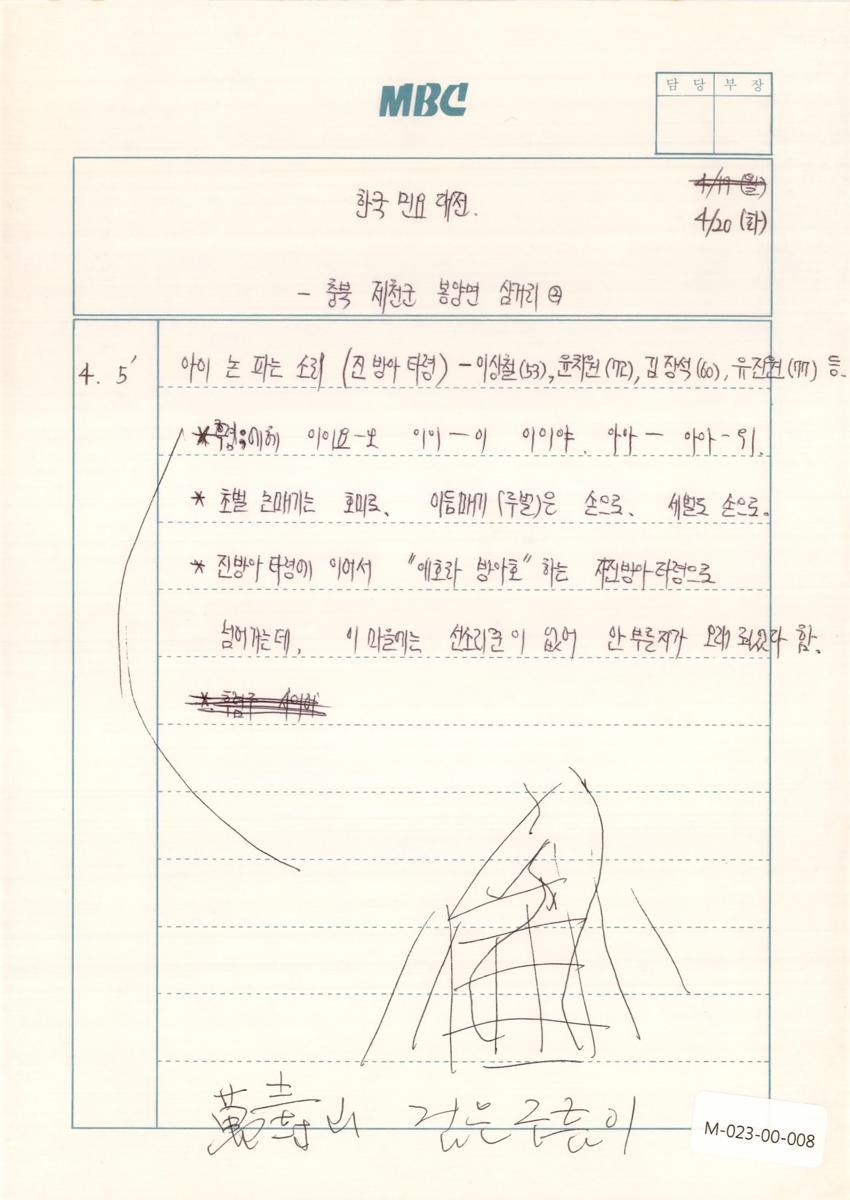 MBC
담 당 부 장
4/19 (월)
한국 민요 대전.
4/20 (화)
- 충북 제천군 봉양면 삼거리 ④
4. 5′ 아이 논 파는 소리 (진방아 타령) - 이상철(53), 윤치원(72), 김장석(60), 유진원(77) 등.
* 후렴; 에헤 이이요-오 이이-이 이이야. 아아- 아아-위.
* 초벌 논매기는 호미로, 이듬매기 (두벌)은 손으로, 세벌도 손으로.
* 진방아 타령에 이어서 "에호라 방아호" 하는 자진방아타령으로
넘어가는데, 이 마을에는 선소리꾼이 없어 안 부른지가 오래 되었다 함.
萬壽山 검은 구름이
M-023-00-008